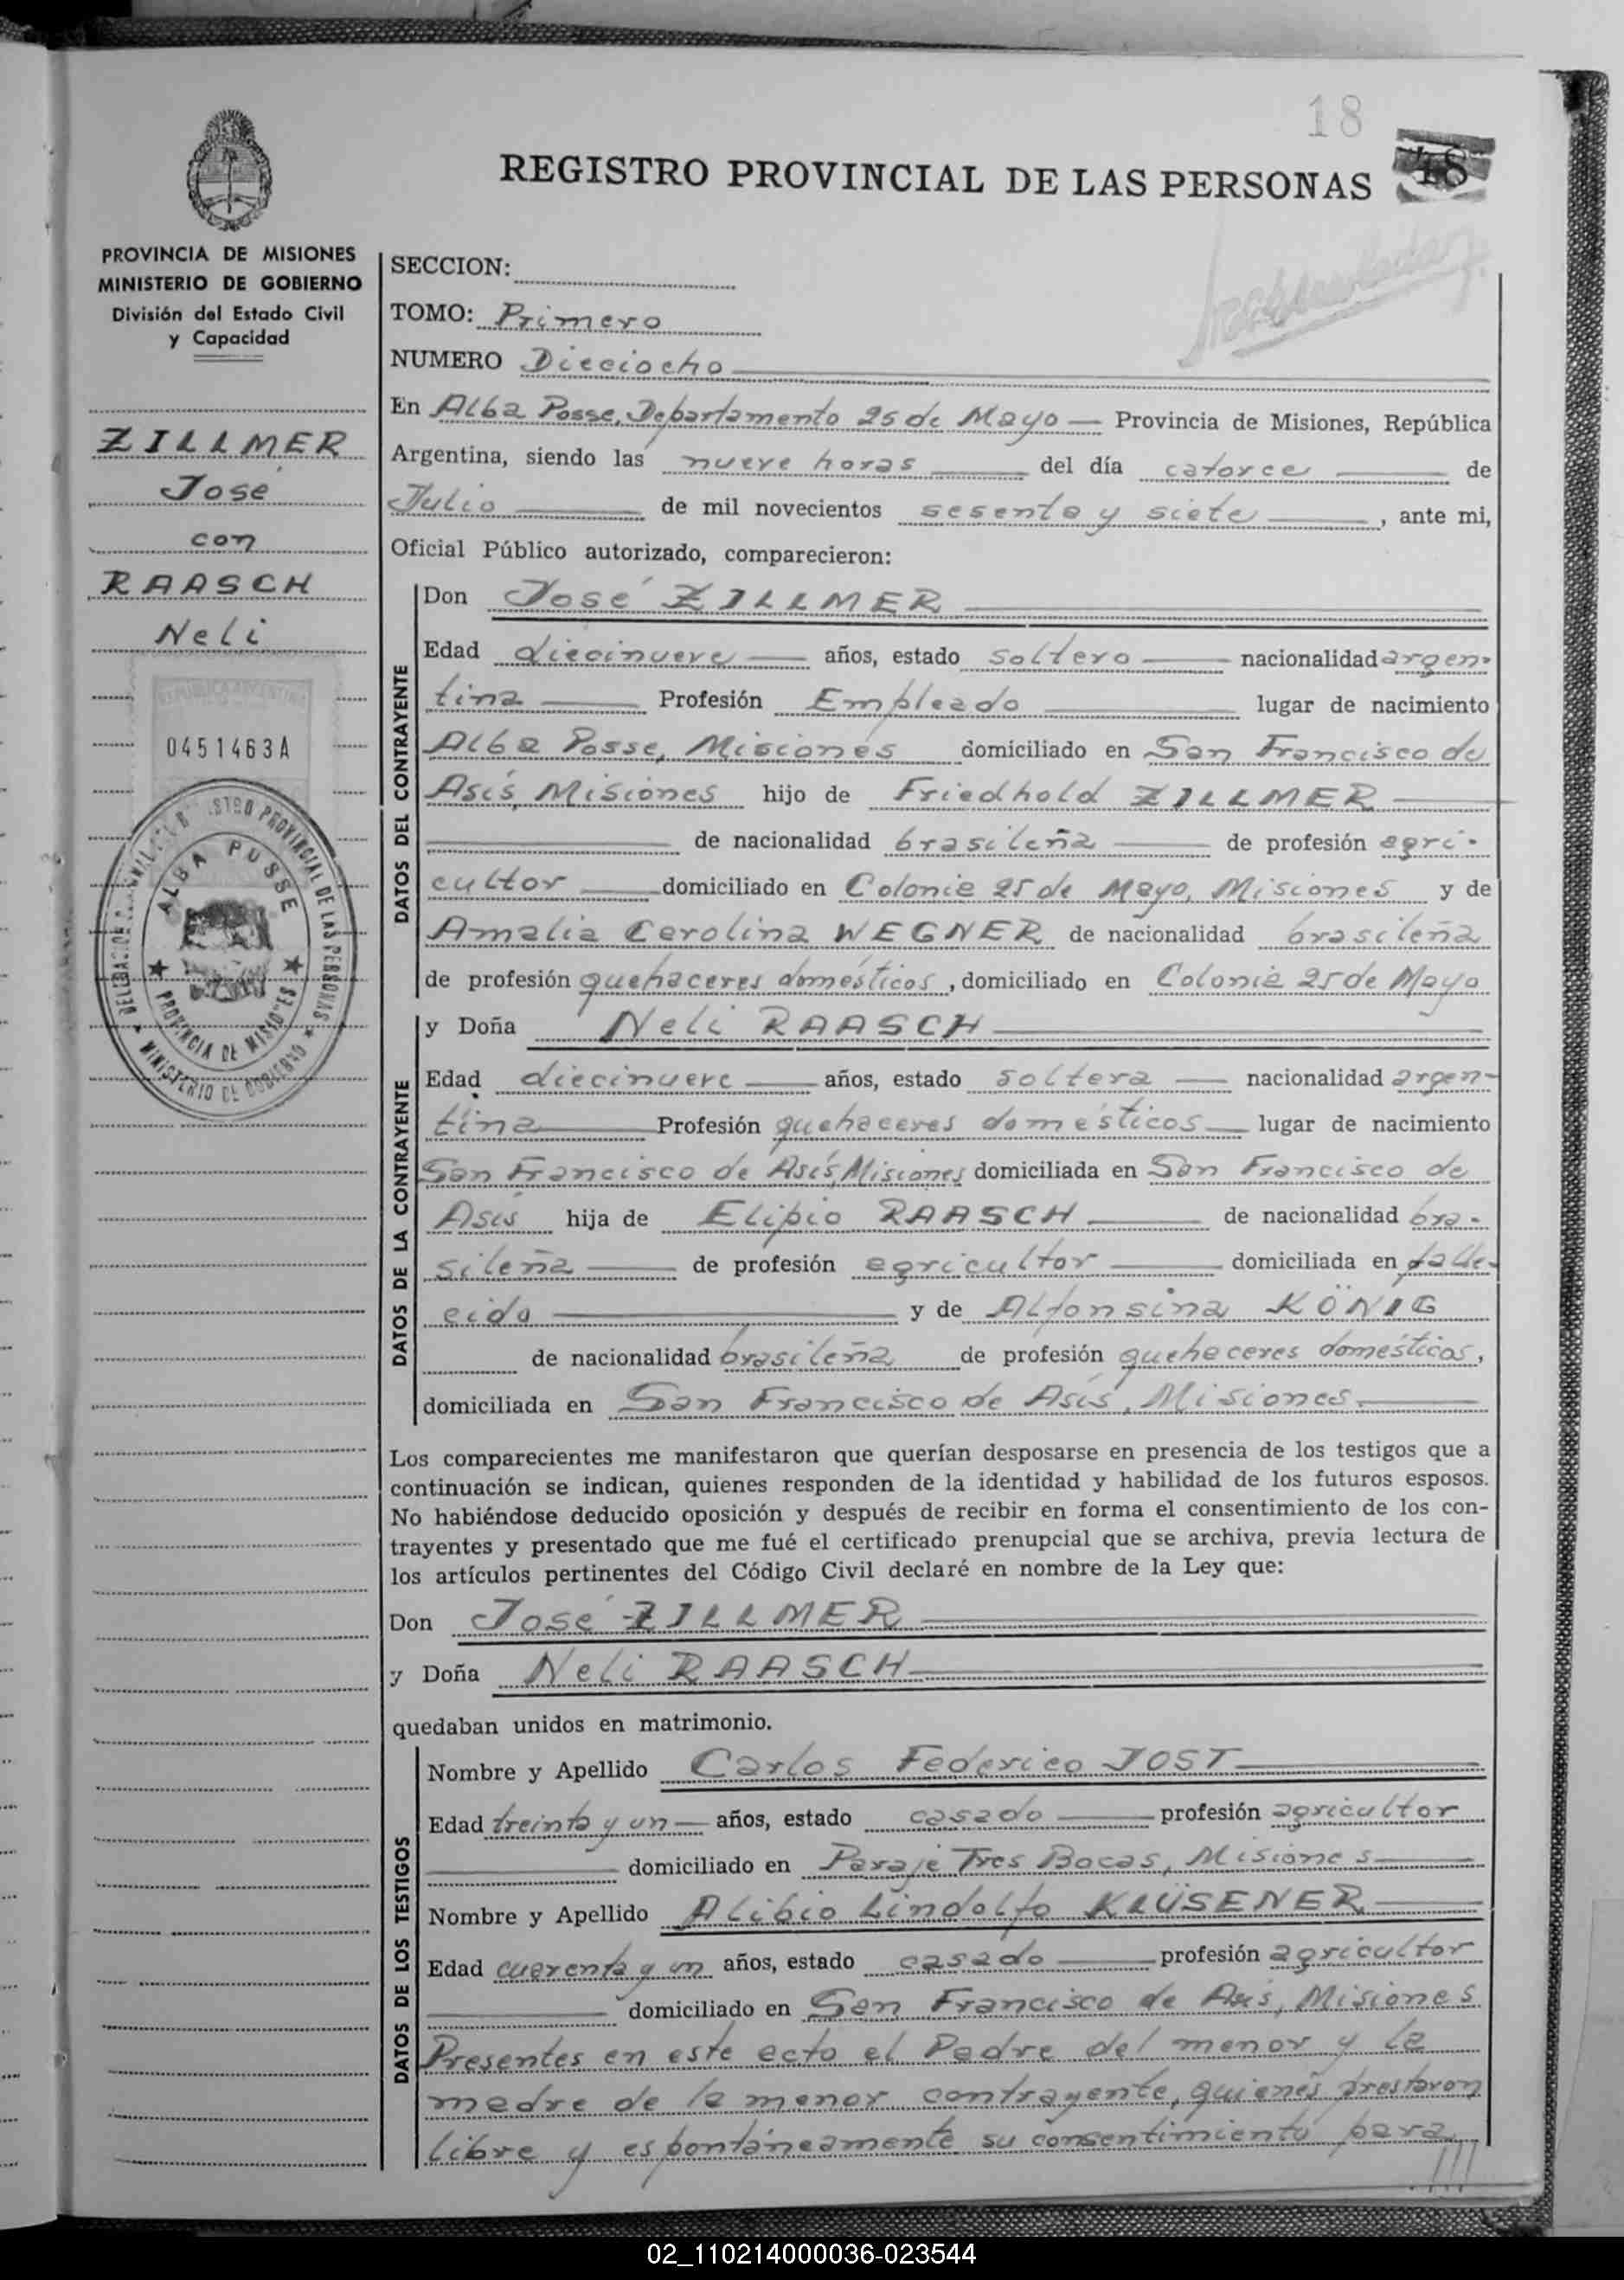 18
REGISTRO PROVINCIAL DE LAS PERSONAS 18
PROVINCIA DE MISIONES
MINISTERIO DE GOBIERNO
División del Estado Civil
y Capacidad
ZILLMER
José
con
RAASCH
Neli
REPUBLICA ARGENTINA
0451463A
REGISTRO PROVINCIAL DE LAS PERSONAS
ALBA POSSE
PROVINCIA DE MISIONES
MINISTERIO DE GOBIERNO
SECCION:
TOMO: Primero
NUMERO Dieciocho
En Alba Posse, Departamento 25 de Mayo — Provincia de Misiones, República
Argentina, siendo las nueve horas — del día catorce — de
Julio — de mil novecientos sesenta y siete —, ante mi,
Oficial Público autorizado, comparecieron:
DATOS DEL CONTRAYENTE
Don José ZILLMER
Edad diecinueve — años, estado soltero — nacionalidad argen-
tina — Profesión Empleado — lugar de nacimiento
Alba Posse, Misiones domiciliado en San Francisco de
Asís, Misiones hijo de Friedhold ZILLMER —
— de nacionalidad brasileña — de profesión agri-
cultor — domiciliado en Colonia 25 de Mayo, Misiones y de
Amalia Carolina WEGNER de nacionalidad brasileña
de profesión quehaceres domésticos, domiciliado en Colonia 25 de Mayo
DATOS DE LA CONTRAYENTE
y Doña Neli RAASCH
Edad diecinueve — años, estado soltera — nacionalidad argen-
tina — Profesión quehaceres domésticos — lugar de nacimiento
San Francisco de Asís, Misiones domiciliada en San Francisco de
Asís hija de Elipio RAASCH — de nacionalidad bra-
sileña — de profesión agricultor — domiciliada en falle-
cido — y de Alfonsina KÖNIG
de nacionalidad brasileña de profesión quehaceres domésticos,
domiciliada en San Francisco de Asís, Misiones. —
Los comparecientes me manifestaron que querían desposarse en presencia de los testigos que a
continuación se indican, quienes responden de la identidad y habilidad de los futuros esposos.
No habiéndose deducido oposición y después de recibir en forma el consentimiento de los con-
trayentes y presentado que me fué el certificado prenupcial que se archiva, previa lectura de
los artículos pertinentes del Código Civil declaré en nombre de la Ley que:
Don José ZILLMER
y Doña Neli RAASCH
quedaban unidos en matrimonio.
DATOS DE LOS TESTIGOS
Nombre y Apellido Carlos Federico JOST
Edad treinta y un — años, estado casado — profesión agricultor
— domiciliado en Paraje Tres Bocas, Misiones —
Nombre y Apellido Alibio Lindolfo KLÜSENER
Edad cuarenta y un años, estado casado — profesión agricultor
— domiciliado en San Francisco de Asís, Misiones
Presentes en este acto el Padre del menor y la
madre de la menor contrayente, quienes prestaron
libre y espontáneamente su consentimiento para
///
02_110214000036-023544